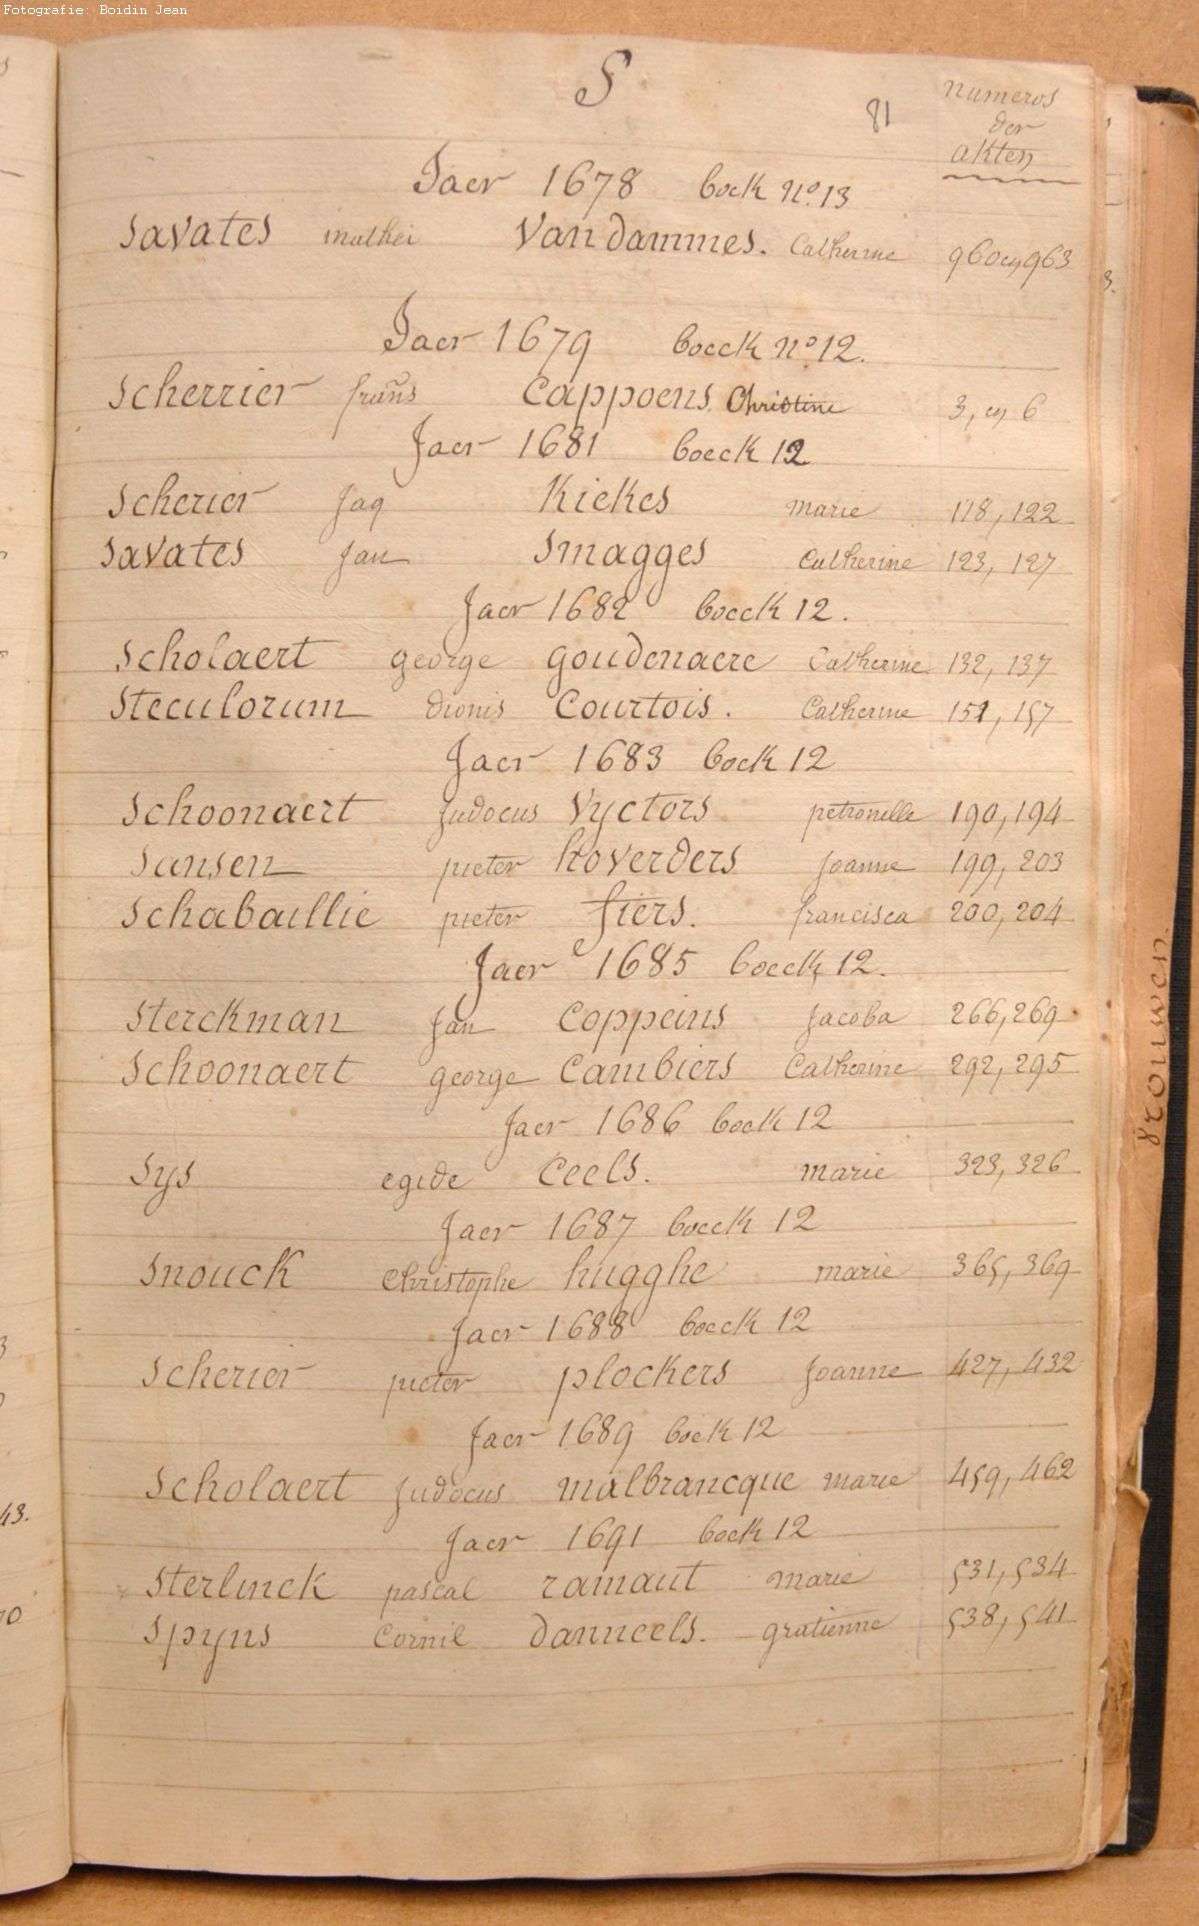 Fotografie: Boidin Jean
S
81
numeros
der
akten
Jaer 1678 boek No. 13
Savates mathei Vandammes. Catherine 960 en 963
Jaer 1679 boeck No 12.
Scherrier frans Cappoens Christine 3, en 6
Jaer 1681 boeck 12
Scherier Jaq Kiekes marie 118, 122
Savates Jan Smagges Catherine 123, 127
Jaer 1682 boeck 12.
Scholaert george goudenaere Catherine 132, 137
Steculorum dionis Courtois. Catherine 151, 157
Jaer 1683 boek 12
Schoonaert Judocus Vyctors petronelle 190, 194
Sansen pieter hoverders Joanne 199, 203
Schabaillie pieter fiers. francisca 200, 204
Jaer 1685 boeck 12.
Sterckman Jan Coppeins Jacoba 266, 269
Schoonaert george Cambiers Catherine 292, 295
Jaer 1686 boek 12
Sys egide Ceels. marie 323, 326
Jaer 1687 boeck 12
Snouck Christophe hugghe marie 365, 369
Jaer 1688 boeck 12
Scherier pieter plockers Joanne 427, 432
Jaer 1689 boek 12
Scholaert Judocus malbrancque marie 459, 462
Jaer 1691 boek 12
Sterlinck pascal ramaut marie 531, 534
Spyns Cornil danneels. gratienne 538, 541
vrouwen
3.
43.
70